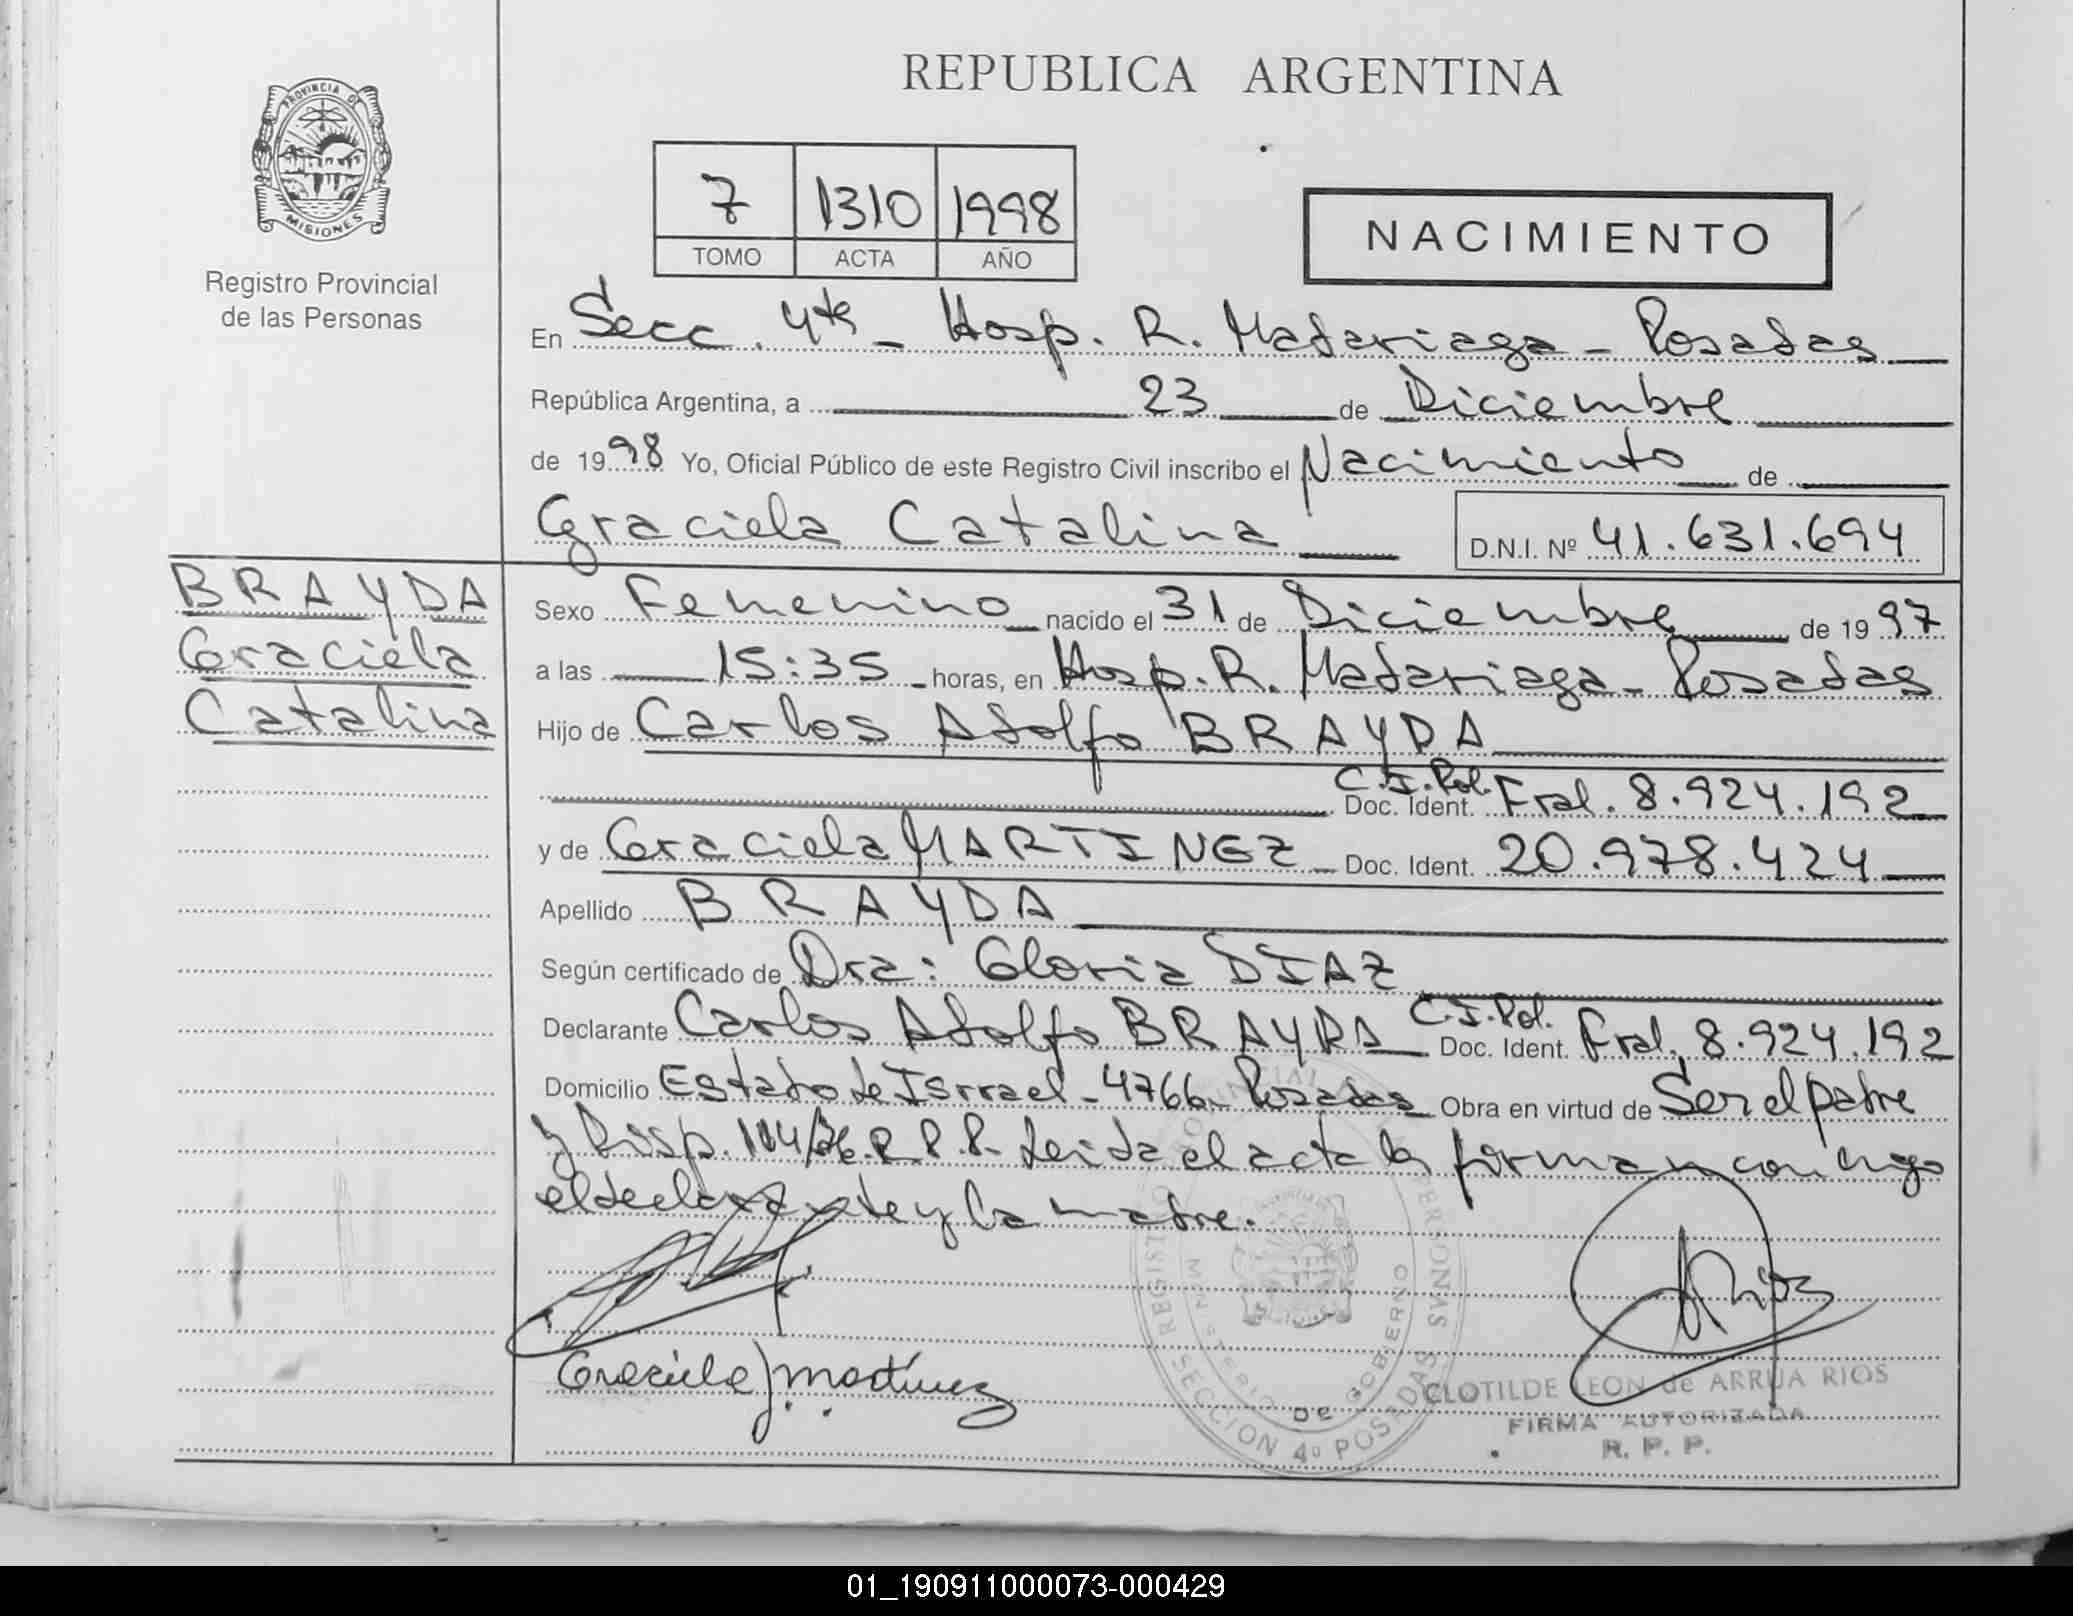 REPUBLICA ARGENTINA
PROVINCIA DE
MISIONES
Registro Provincial
de las Personas
7 1310 1998
TOMO ACTA AÑO
NACIMIENTO
En Secc. 4ta - Hosp. R. Madariaga - Posadas
República Argentina, a 23 de Diciembre
de 1998 Yo, Oficial Público de este Registro Civil inscribo el Nacimiento de
Graciela Catalina D.N.I. Nº 41.631.694
BRAYDA
Graciela
Catalina
Sexo Femenino nacido el 31 de Diciembre de 1997
a las 15:35 horas, en Hosp. R. Madariaga - Posadas
Hijo de Carlos Adolfo BRAYDA
C.I. Pol.
Doc. Ident. Fral. 8.924.192
y de Graciela MARTINEZ Doc. Ident. 20.978.424
Apellido BRAYDA
Según certificado de Dra: Gloria DIAZ
C.I. Pol.
Declarante Carlos Adolfo BRAYDA Doc. Ident. Fral. 8.924.192
Domicilio Estado de Isrrael - 4766 - Posadas Obra en virtud de Ser el padre
y Disp. 104/ R.P.P. Leida el acta la firman conmigo
el declarante y la madre.
Graciela Martínez
Rios
REGISTRO PROVINCIAL DE LAS PERSONAS
MINISTERIO DE GOBIERNO
SECCION 4º POSADAS
CLOTILDE LEON de ARRUA RIOS
FIRMA AUTORIZADA
R. P. P.
01_190911000073-000429